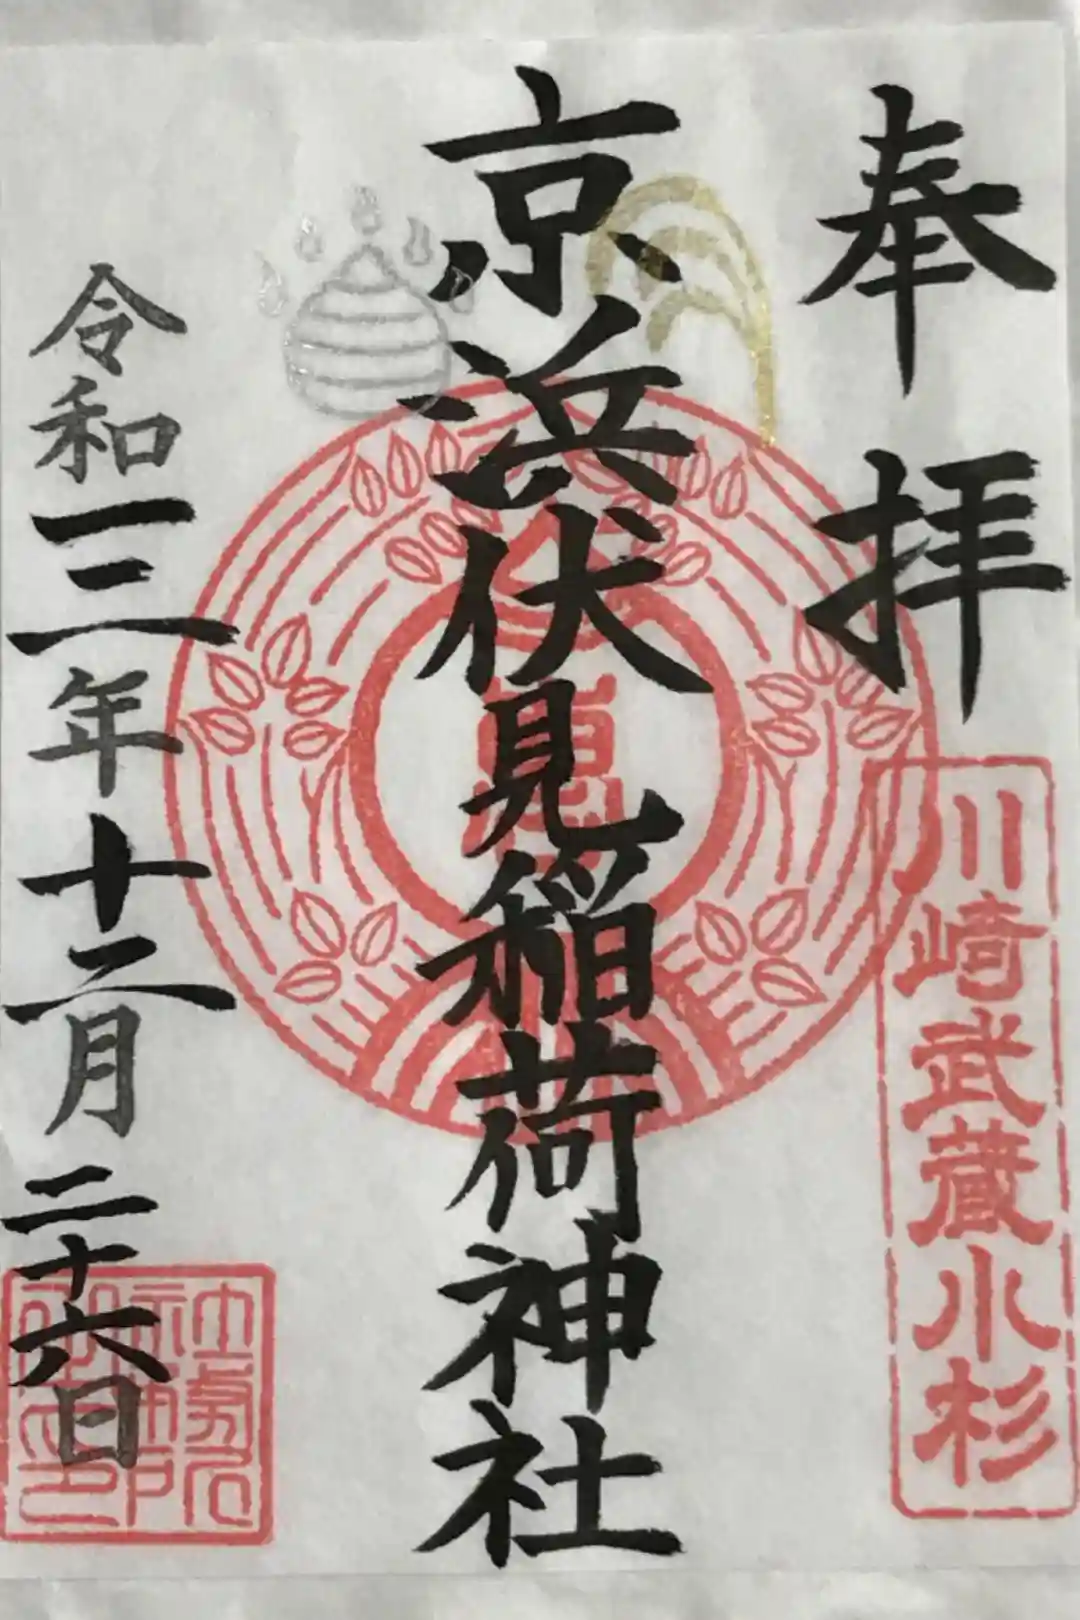 奉拝
川崎武蔵小杉
京浜伏見稲荷神社
令和三年十二月二十六日